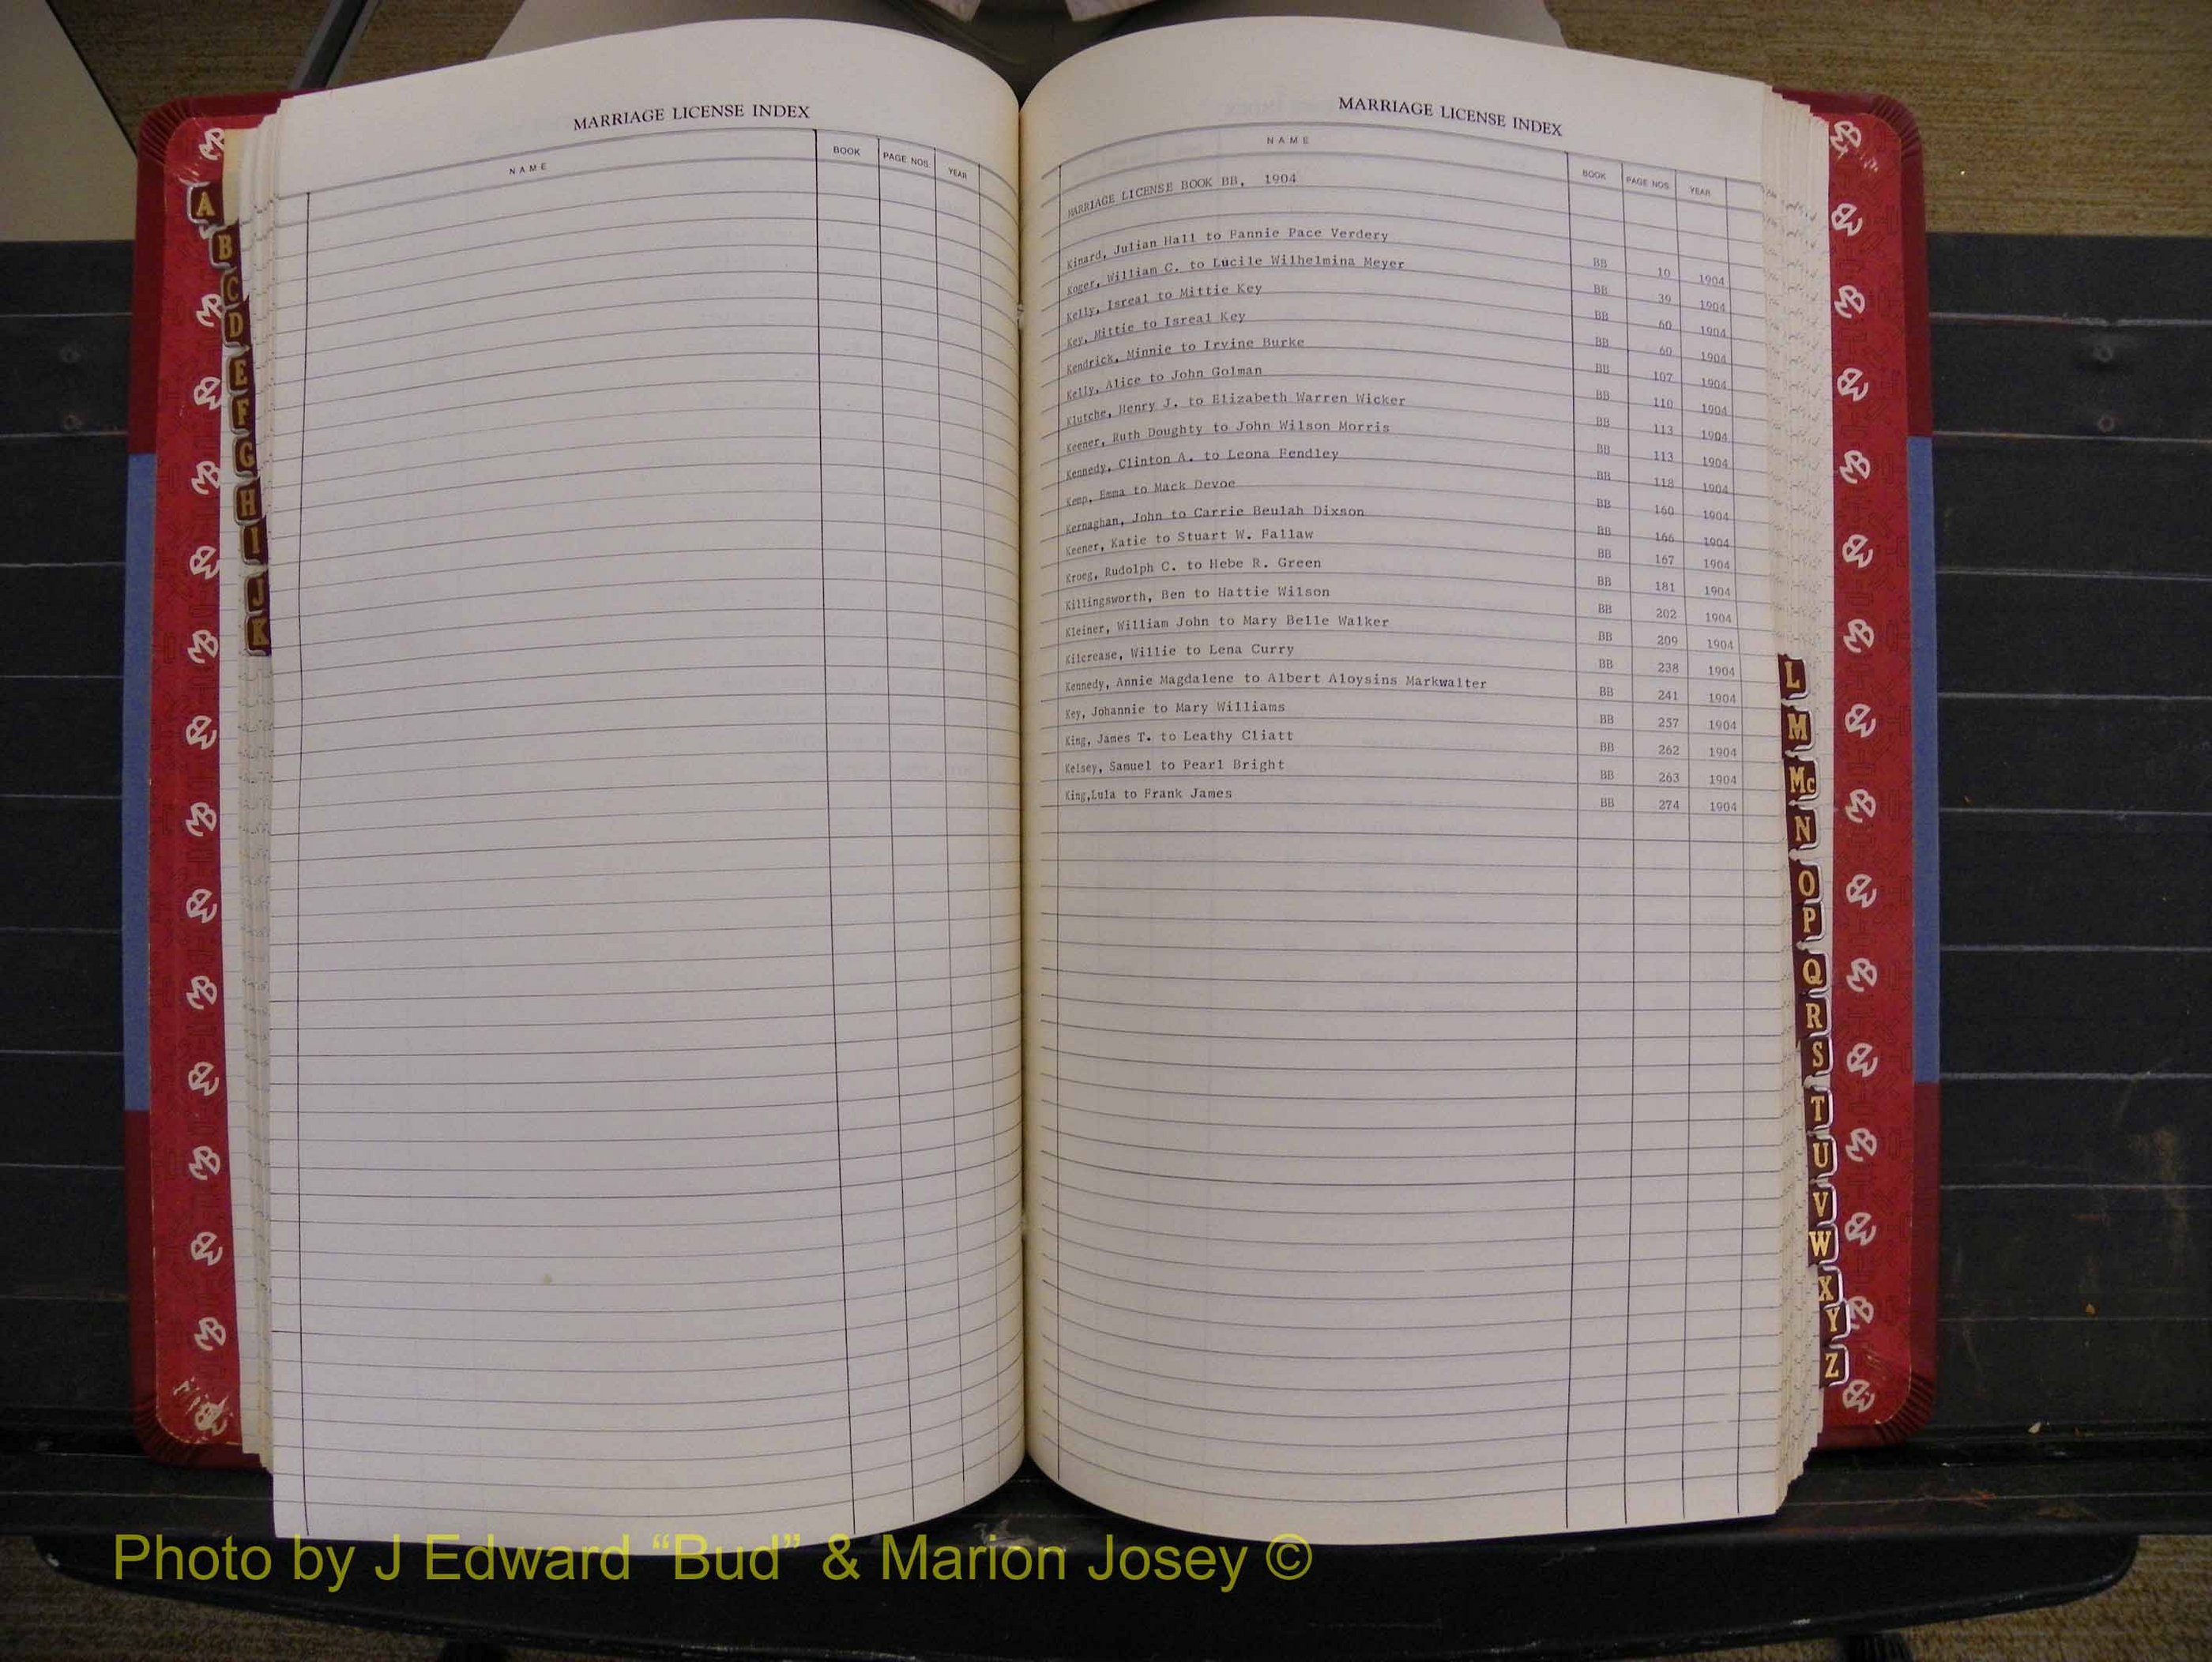 MARRIAGE LICENSE INDEX
NAME BOOK PAGE NOS. YEAR
A
B
C
D
E
F
G
H
I
J
K
MARRIAGE LICENSE INDEX
NAME BOOK PAGE NOS. YEAR
MARRIAGE LICENSE BOOK BB, 1904
Kinard, Julian Hall to Fannie Pace Verdery BB 10 1904
Koger, William C. to Lucile Wilhelmina Meyer BB 39 1904
Kelly, Isreal to Mittie Key BB 60 1904
Key, Mittie to Isreal Key BB 60 1904
Kendrick, Minnie to Irvine Burke BB 107 1904
Kelly, Alice to John Golman BB 110 1904
Klutche, Henry J. to Elizabeth Warren Wicker BB 113 1904
Keener, Ruth Doughty to John Wilson Morris BB 113 1904
Kennedy, Clinton A. to Leona Fendley BB 118 1904
Kemp, Emma to Mack Devoe BB 160 1904
Kernaghan, John to Carrie Beulah Dixson BB 166 1904
Keener, Katie to Stuart W. Fallaw BB 167 1904
Kroeg, Rudolph C. to Hebe R. Green BB 181 1904
Killingsworth, Ben to Hattie Wilson BB 202 1904
Kleiner, William John to Mary Belle Walker BB 209 1904
Kilcrease, Willie to Lena Curry BB 238 1904
Kennedy, Annie Magdalene to Albert Aloysins Markwalter BB 241 1904
Key, Johannie to Mary Williams BB 257 1904
King, James T. to Leathy Cliatt BB 262 1904
Kelsey, Samuel to Pearl Bright BB 263 1904
King,Lula to Frank James BB 274 1904
L
M
Mc
N
O
P
Q
R
S
T
U
V
W
X
Y
Z
Photo by J Edward “Bud” & Marion Josey ©